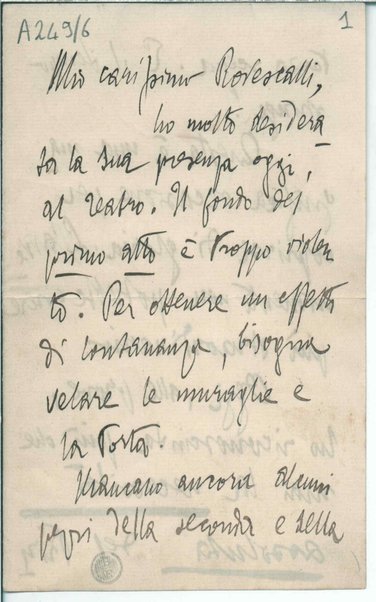 A249/6
1
Mio carissimo Rovescalli,
ho molto desidera
ta la sua presenza oggi,
al teatro. Il fondo del
primo atto è troppo violen
to. Per ottenere un effetto
di lontananza, bisogna
velare le muraglie e
la Porta.
Mancano ancora alcuni
pezzi della seconda e della